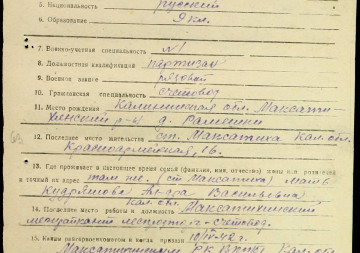 5. Национальность русский
6. Образование 9 кл.
7. Военно-учетная специальность №1
8. Должностная квалификация партизан
9. Военное звание рядовой
10. Гражданская специальность счетовод
11. Место рождения Калининская обл. Максати-
хинский р-н д. Рамешки
12. Последнее место жительства ст. Максатиха Кал. обл.
Красноармейская, 1в.
13. Где проживает в настоящее время семья (фамилия, имя, отчество) жены или родителей
и точный их адрес там же. (ст. Максатиха) мать
Кудряшова Васильевна
Кал. обл.
14. Последнее место работы и должность Максатихинский
счетовод.
15. Каким райвоенкоматом и когда призван 10/IV-42 г.
Максатихинским РК Кал. обл.